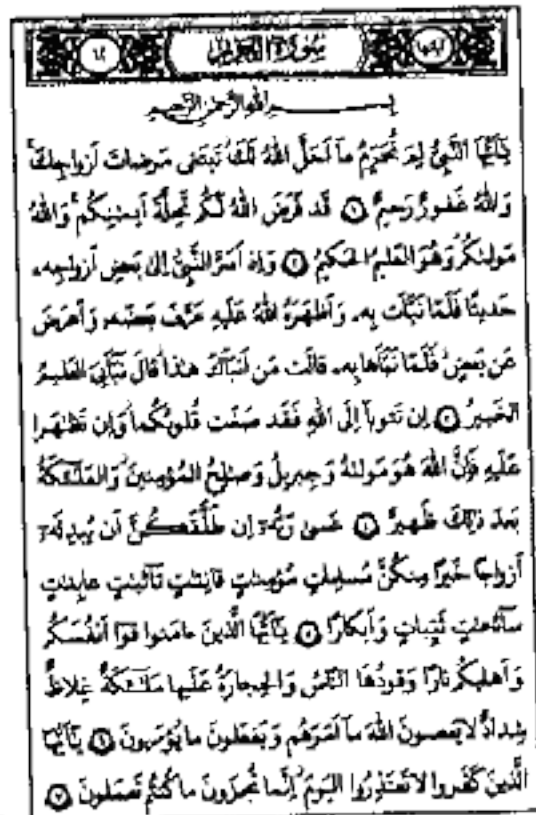 سُورَةُ التَّحْرِيمِ
بِسْمِ اللَّهِ الرَّحْمَٰنِ الرَّحِيمِ
يَٰٓأَيُّهَا ٱلنَّبِىُّ لِمَ تُحَرِّمُ مَآ أَحَلَّ ٱللَّهُ لَكَ ۖ تَبْتَغِى مَرْضَاتَ أَزْوَٰجِكَ ۚ
وَٱللَّهُ غَفُورٌ رَّحِيمٌ ١ قَدْ فَرَضَ ٱللَّهُ لَكُمْ تَحِلَّةَ أَيْمَٰنِكُمْ ۚ وَٱللَّهُ
مَوْلَىٰكُمْ ۖ وَهُوَ ٱلْعَلِيمُ ٱلْحَكِيمُ ٢ وَإِذْ أَسَرَّ ٱلنَّبِىُّ إِلَىٰ بَعْضِ أَزْوَٰجِهِۦ
حَدِيثًا فَلَمَّا نَبَّأَتْ بِهِۦ وَأَظْهَرَهُ ٱللَّهُ عَلَيْهِ عَرَّفَ بَعْضَهُۥ وَأَعْرَضَ
عَنۢ بَعْضٍ ۖ فَلَمَّا نَبَّأَهَا بِهِۦ قَالَتْ مَنْ أَنۢبَأَكَ هَٰذَا ۖ قَالَ نَبَّأَنِىَ ٱلْعَلِيمُ
ٱلْخَبِيرُ ٣ إِن تَتُوبَآ إِلَى ٱللَّهِ فَقَدْ صَغَتْ قُلُوبُكُمَا ۖ وَإِن تَظَٰهَرَا
عَلَيْهِ فَإِنَّ ٱللَّهَ هُوَ مَوْلَىٰهُ وَجِبْرِيلُ وَصَٰلِحُ ٱلْمُؤْمِنِينَ ۖ وَٱلْمَلَٰٓئِكَةُ
بَعْدَ ذَٰلِكَ ظَهِيرٌ ٤ عَسَىٰ رَبُّهُۥٓ إِن طَلَّقَكُنَّ أَن يُبْدِلَهُۥٓ
أَزْوَٰجًا خَيْرًا مِّنكُنَّ مُسْلِمَٰتٍ مُّؤْمِنَٰتٍ قَٰنِتَٰتٍ تَٰٓئِبَٰتٍ عَٰبِدَٰتٍ
سَٰٓئِحَٰتٍ ثَيِّبَٰتٍ وَأَبْكَارًا ٥ يَٰٓأَيُّهَا ٱلَّذِينَ ءَامَنُوا۟ قُوٓا۟ أَنفُسَكُمْ
وَأَهْلِيكُمْ نَارًا وَقُودُهَا ٱلنَّاسُ وَٱلْحِجَارَةُ عَلَيْهَا مَلَٰٓئِكَةٌ غِلَاظٌ
شِدَادٌ لَّا يَعْصُونَ ٱللَّهَ مَآ أَمَرَهُمْ وَيَفْعَلُونَ مَا يُؤْمَرُونَ ٦ يَٰٓأَيُّهَا
ٱلَّذِينَ كَفَرُوا۟ لَا تَعْتَذِرُوا۟ ٱلْيَوْمَ ۖ إِنَّمَا تُجْزَوْنَ مَا كُنتُمْ تَعْمَلُونَ ٧